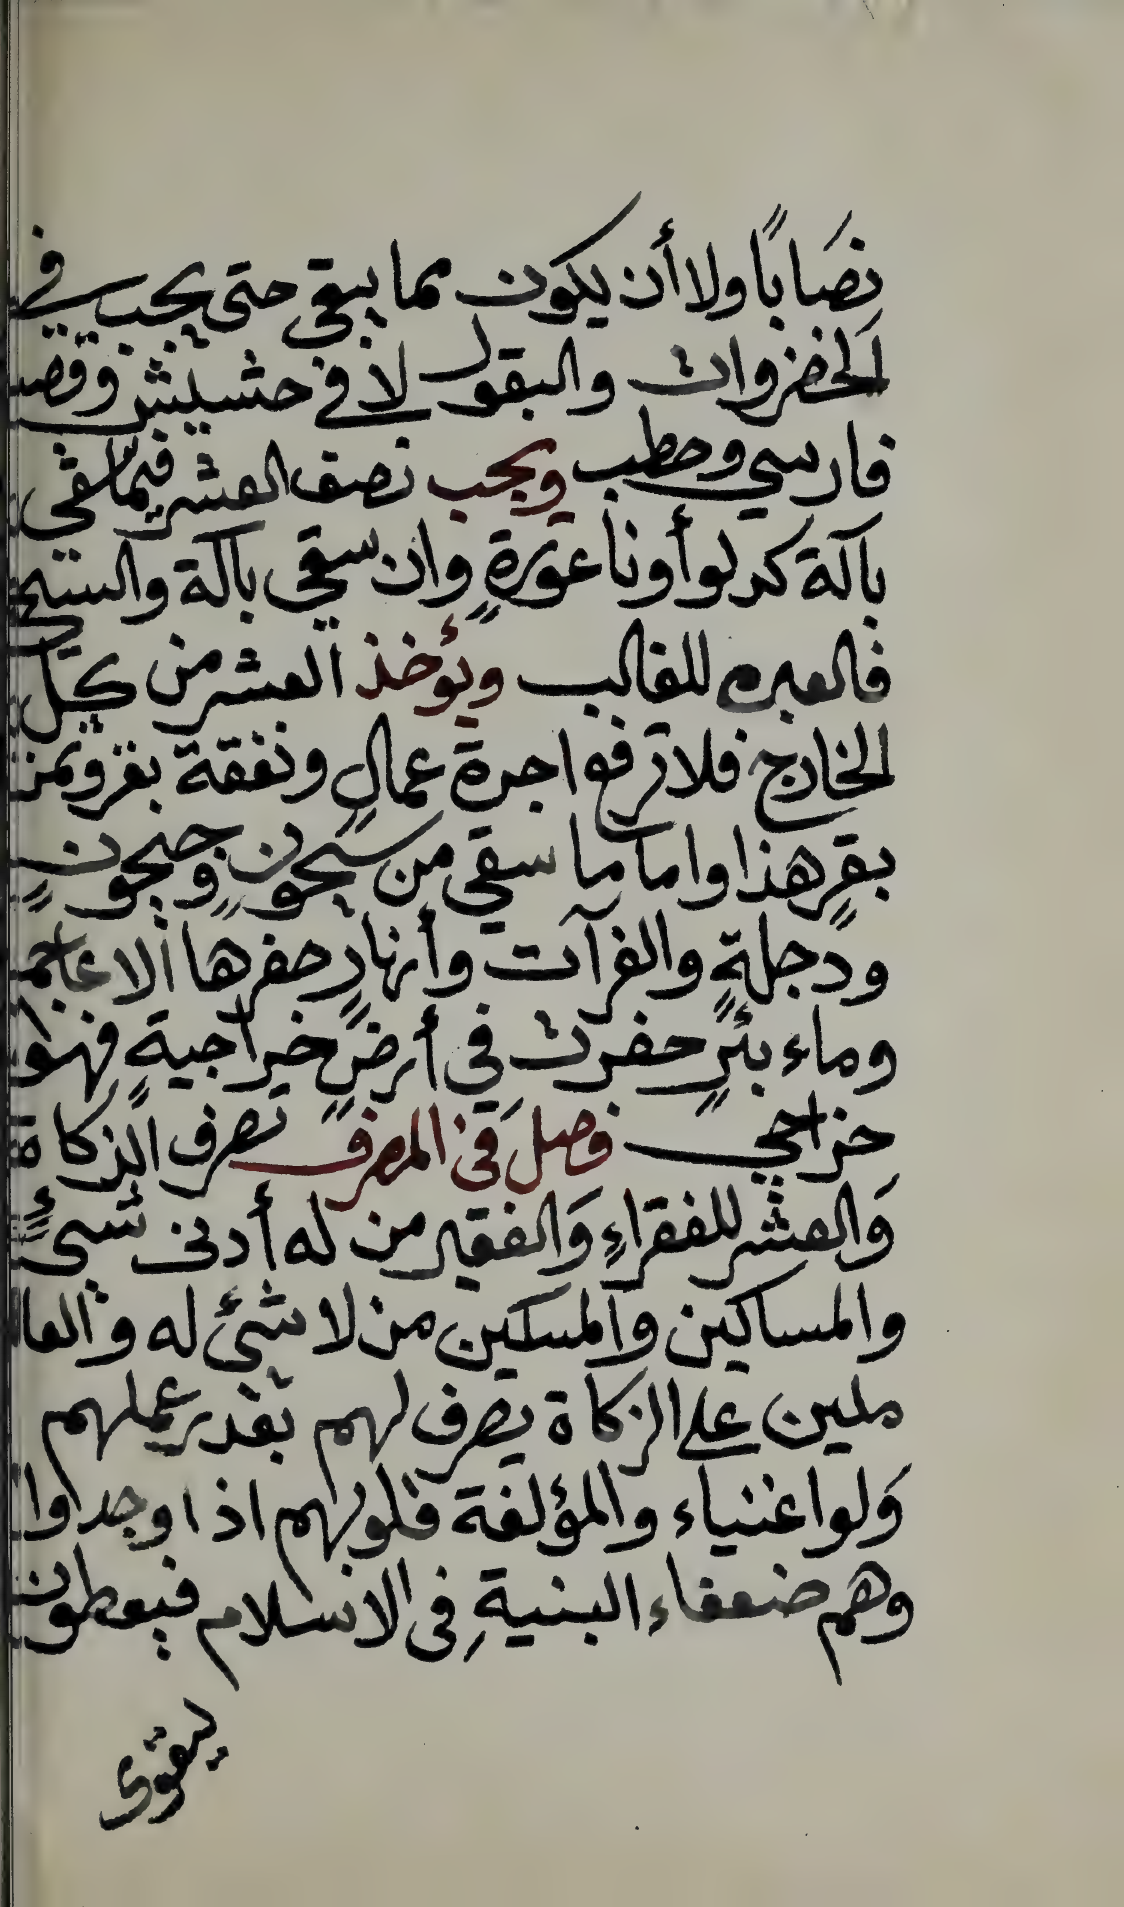 نِصَاباً ولا أن يكون مما يبقى حتى يجب في
الخضروات والبقول لا في حشيش وقصب
فارسي وحطب ويجب نصف العشر فيما سقي
بآلة كدلو أو ناعورةٍ وان سقي بآلة والسيح
فالعبره للغالب ويؤخذ العشر من كل
الخارج فلا ترفع اجرة عمالٍ ونفقة بقر وثمن
بقرٍ هذا واما ما سقي من سيحونٍ وجيحونٍ
ودجلةٍ والفرآت وأنهارٍ حفرها الاعاجم
وماء بئرٍ حفرت في أرضٍ خراجيةٍ فهو
خراجي فصل في المصرف تصرف الزكاة
وَالعشر للفقراءِ وَالفقير من له أدنى شيءٍ
والمساكين والمسكين من لا شئ له والعا
ملين على الزكاة يصرف لهم بقدر عملهم
وَلو اغنياء والمؤلفة قلوبهم اذا وجدوا
وهم ضعفاء البنيةِ في الاسلام فيعطون
ليقوى